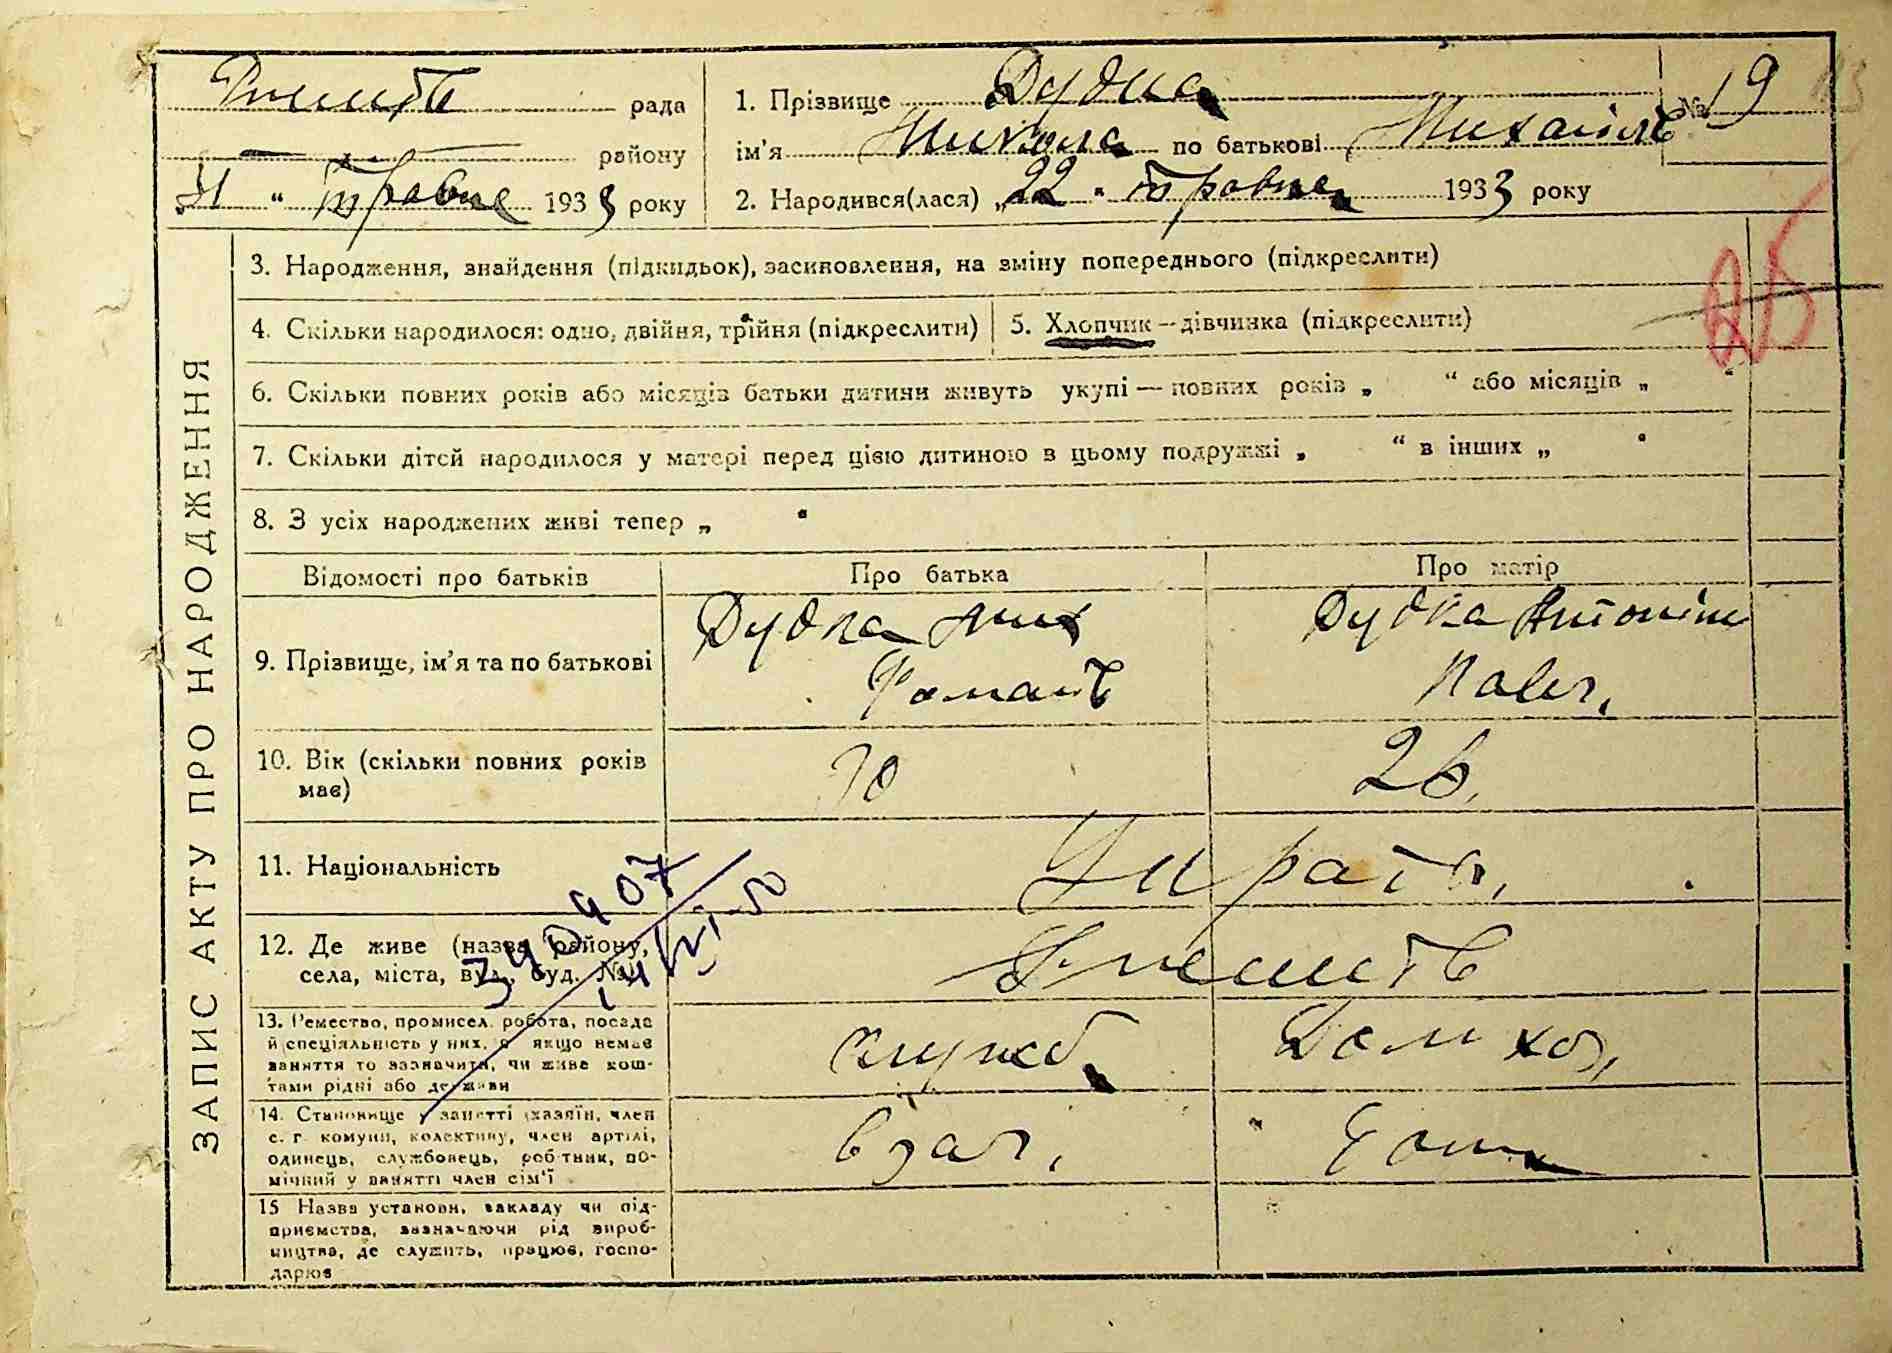 рада
району
" травня 1933 року
1. Прізвище Дудка
№ 19
ім'я Микола по батькові Михайл
2. Народився(лася) „22 " травня 1933 року
ЗАПИС АКТУ ПРО НАРОДЖЕННЯ
3. Народження, знайдення (підкидьок), засиновлення, на зміну попереднього (підкреслити)
4. Скільки народилося: одно, двійня, трійня (підкреслити)
5. Хлопчик — дівчинка (підкреслити)
6. Скільки повних років або місяців батьки дитини живуть укупі — повних років „ " або місяців „ "
7. Скільки дітей народилося у матері перед цією дитиною в цьому подружжі „ " в інших „ "
8. З усіх народжених живі тепер „ "
Відомості про батьків
Про батька
Про матір
9. Прізвище, ім'я та по батькові
Дудка Мих
Роман
Дудка Антонін
Павл.
10. Вік (скільки повних років
має)
30
26.
11. Національність
12. Де живе (назва району,
села, міста, вул., буд. №)
13. Ремество, промисел, робота, посада
й спеціяльність у них, а якщо немає
заняття то зазначити, чи живе кош-
тами рідні або держави
служб.
Дом хоз.
14. Становище у занятті (хазяїн, член
с. г. комуни, колективу, член артілі,
одинець, службовець, робітник, по-
мічний у занятті член сім'ї
врач.
15 Назва установи, закладу чи під-
приємства, зазначаючи рід вироб-
ництва, де служить, працює, госпо-
дарює